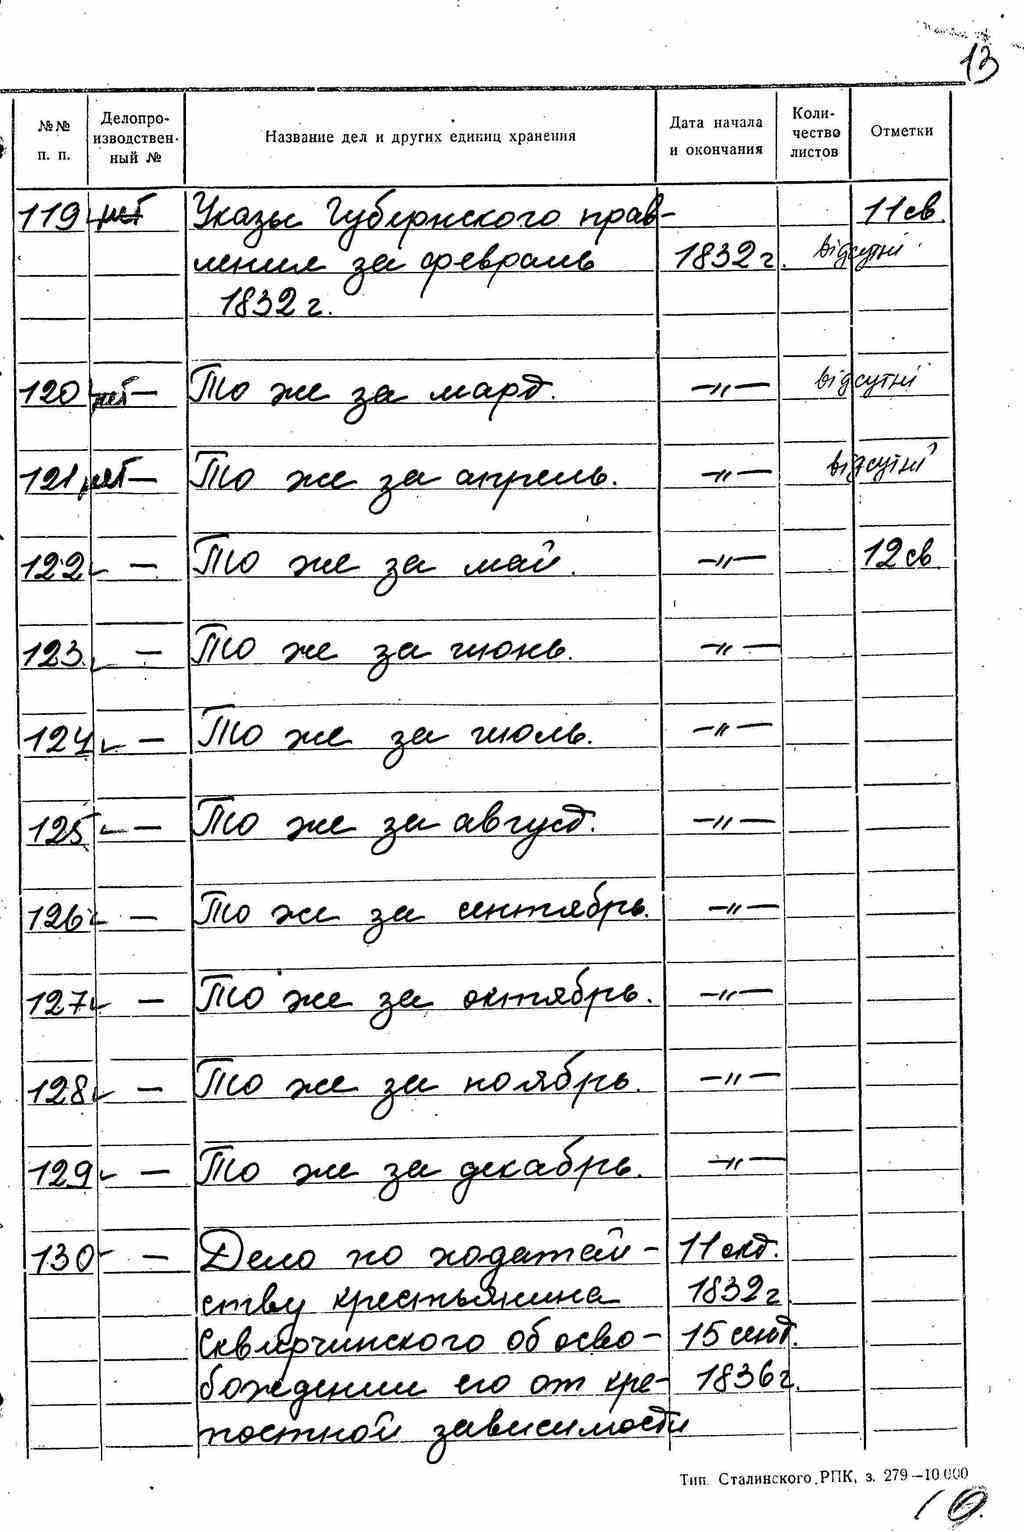 13
№№ п. п. Делопро-изводствен-ный № Название дел и других единиц хранения Дата начала и окончания Коли-чество листов Отметки
119 нет Указы Губернского прав- 11 св.
ления за февраль 1832 г. відсутні
1832 г.
120 нет — То же за март. —"— відсутні
121 нет — То же за апрель. —"— відсутні
122 — То же за май. —"— 12 св
123. — То же за июнь. —"—
124 — То же за июль. —"—
125 — То же за август. —"—
126 — То же за сентябрь. —"—
127 — То же за октябрь. —"—
128 — То же за ноябрь. —"—
129 — То же за декабрь. —"—
130 — Дело по ходатай- 11 окт.
ству крестьянина 1832 г
Сквярчинского об осво- 15 сент.
бождении его от кре- 1836 г.
постной зависимости
Тип. Сталинского РПК, з. 279—10.000